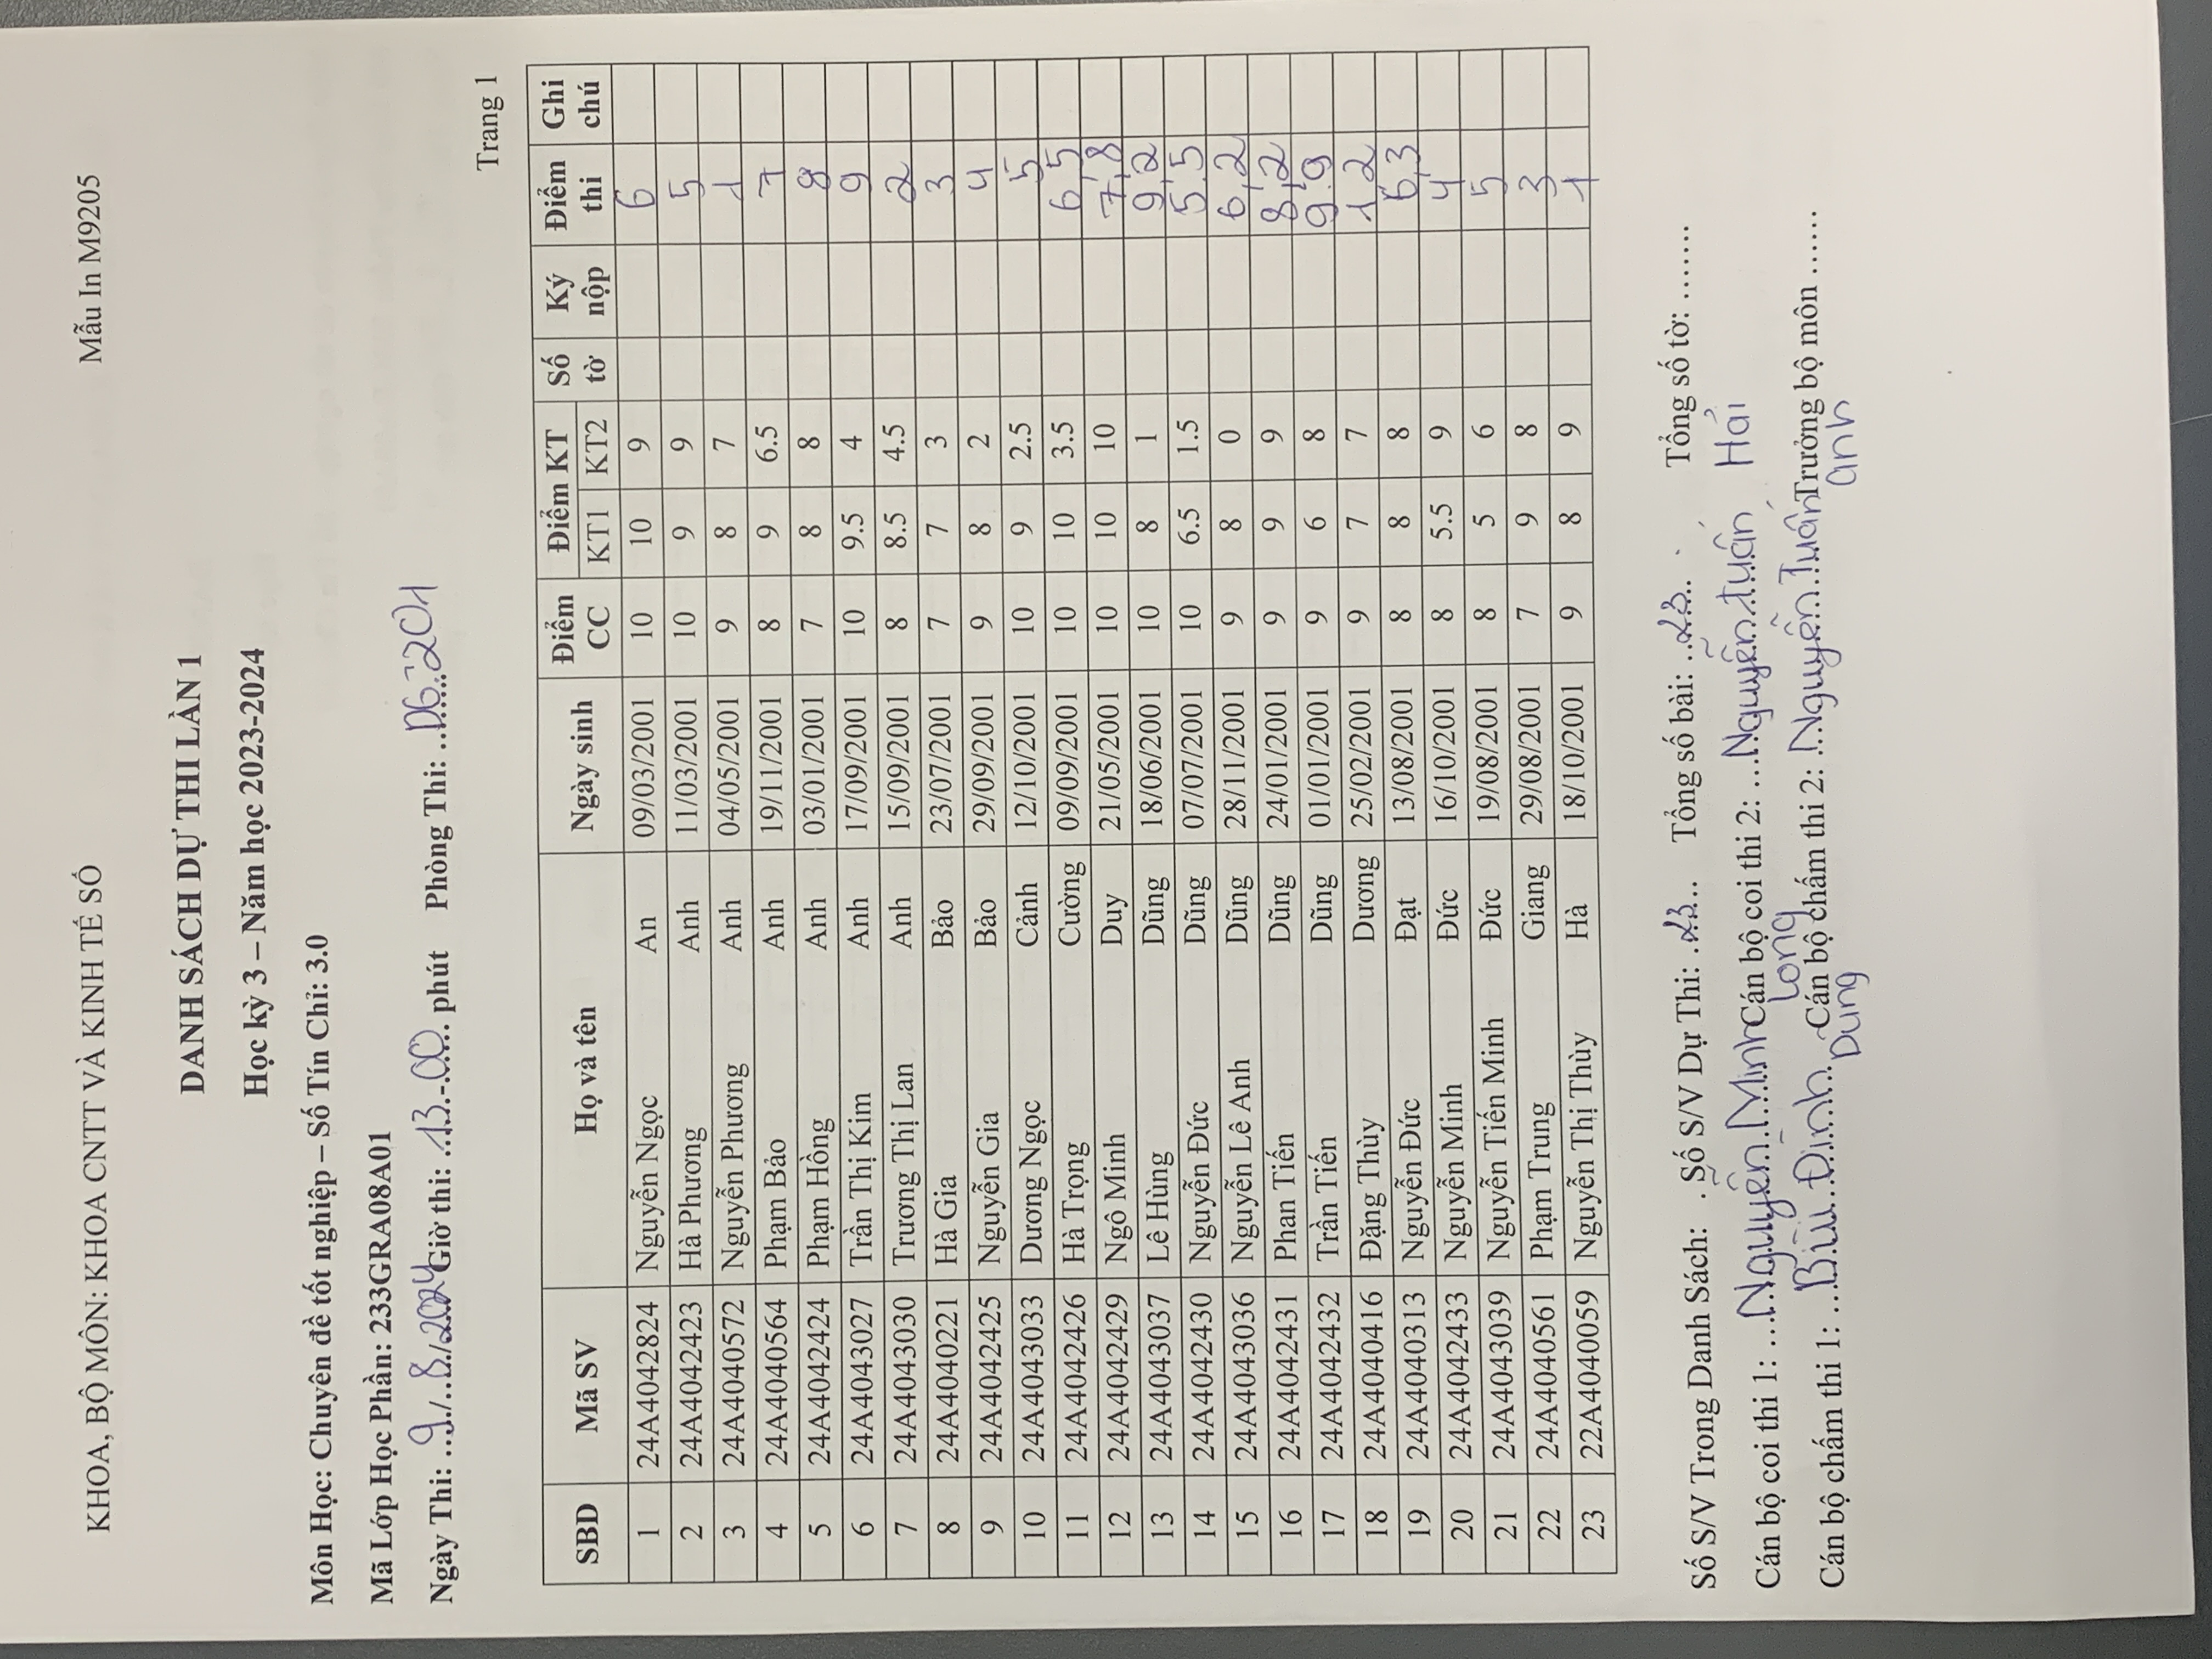 KHOA, BỘ MÔN: KHOA CNTT VÀ KINH TẾ SỐ Mẫu In M9205
DANH SÁCH DỰ THI LẦN 1
Học kỳ 3 – Năm học 2023-2024
Môn Học: Chuyên đề tốt nghiệp – Số Tín Chỉ: 3.0
Mã Lớp Học Phần: 233GRA08A01
Ngày Thi: 9/8/2024 Giờ thi: 13-00 phút Phòng Thi: D6-201
Trang 1
SBD Mã SV Họ và tên Ngày sinh Điểm CC Điểm KT Số tờ Ký nộp Điểm thi Ghi chú
KT1 KT2
1 24A4042824 Nguyễn Ngọc An 09/03/2001 10 10 9 6
2 24A4042423 Hà Phương Anh 11/03/2001 10 9 9 5
3 24A4040572 Nguyễn Phương Anh 04/05/2001 9 8 7 1
4 24A4040564 Phạm Bảo Anh 19/11/2001 8 9 6.5 7
5 24A4042424 Phạm Hồng Anh 03/01/2001 7 8 8 8
6 24A4043027 Trần Thị Kim Anh 17/09/2001 10 9.5 4 9
7 24A4043030 Trương Thị Lan Anh 15/09/2001 8 8.5 4.5 2
8 24A4040221 Hà Gia Bảo 23/07/2001 7 7 3 3
9 24A4042425 Nguyễn Gia Bảo 29/09/2001 9 8 2 4
10 24A4043033 Dương Ngọc Cảnh 12/10/2001 10 9 2.5 5
11 24A4042426 Hà Trọng Cường 09/09/2001 10 10 3.5 6,5
12 24A4042429 Ngô Minh Duy 21/05/2001 10 10 10 7,8
13 24A4043037 Lê Hùng Dũng 18/06/2001 10 8 1 9,2
14 24A4042430 Nguyễn Đức Dũng 07/07/2001 10 6.5 1.5 5.5
15 24A4043036 Nguyễn Lê Anh Dũng 28/11/2001 9 8 0 6,2
16 24A4042431 Phan Tiến Dũng 24/01/2001 9 9 9 8,2
17 24A4042432 Trần Tiến Dũng 01/01/2001 9 6 8 9.9
18 24A4040416 Đặng Thùy Dương 25/02/2001 9 7 7 1,2
19 24A4040313 Nguyễn Đức Đạt 13/08/2001 8 8 8 6,3
20 24A4042433 Nguyễn Minh Đức 16/10/2001 8 5.5 9 4
21 24A4043039 Nguyễn Tiến Minh Đức 19/08/2001 8 5 6 5
22 24A4040561 Phạm Trung Giang 29/08/2001 7 9 8 3
23 22A4040059 Nguyễn Thị Thùy Hà 18/10/2001 9 8 9 1
Số S/V Trong Danh Sách: . Số S/V Dự Thi: ..23.. Tổng số bài: ..23.. Tổng số tờ: .......
Cán bộ coi thi 1: ...Nguyễn Minh Long Cán bộ coi thi 2: ...Nguyễn Tuấn Hải
Cán bộ chấm thi 1: ...Bùi Đình Dũng Cán bộ chấm thi 2: ...Nguyễn Tuấn Anh Trưởng bộ môn ......